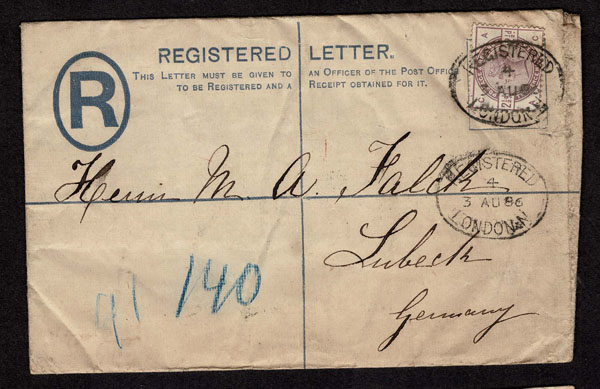 REGISTERED LETTER.
THIS LETTER MUST BE GIVEN TO AN OFFICER OF THE POST OFFICE
TO BE REGISTERED AND A RECEIPT OBTAINED FOR IT.
R
REGISTERED
4
AU
LONDON.N
REGISTERED
4
3 AU 86
LONDON.N
Herrn M. A. Falck
Lubeck
Germany
91 140